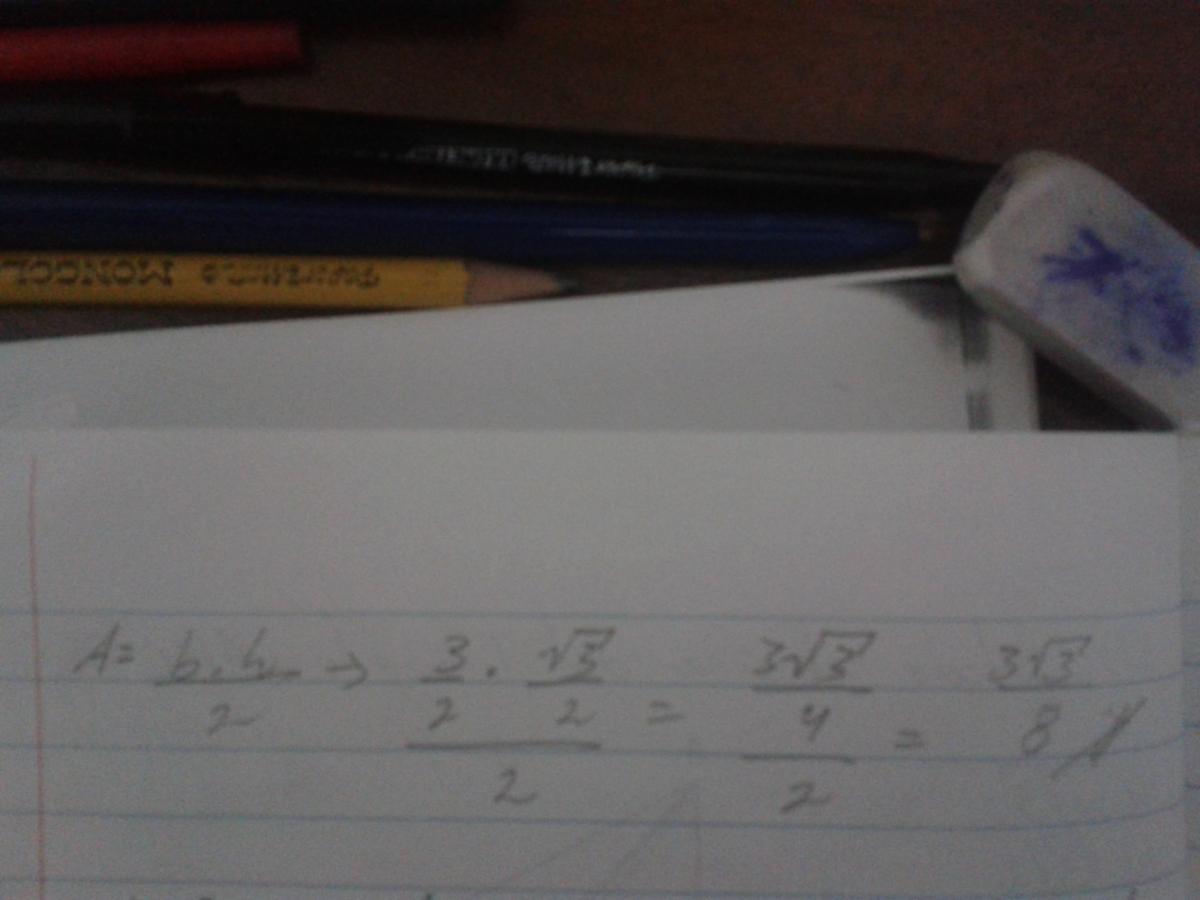 MONGOL
A= b.h/2 → (3/2 . √3/2)/2 = (3√3/4)/2 = 3√3/8